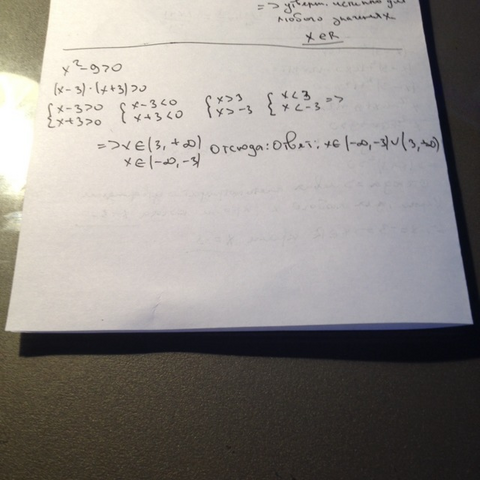 => утверж. истинно для
любого значения
x∈R
x²-9>0
(x-3)·(x+3)>0
{x-3>0 {x-3<0 {x>3 {x<3 =>
{x+3>0 {x+3<0 {x>-3 {x<-3
=> x∈(3,+∞) Отсюда: Ответ: x∈(-∞,-3)∪(3,+∞)
x∈(-∞,-3)